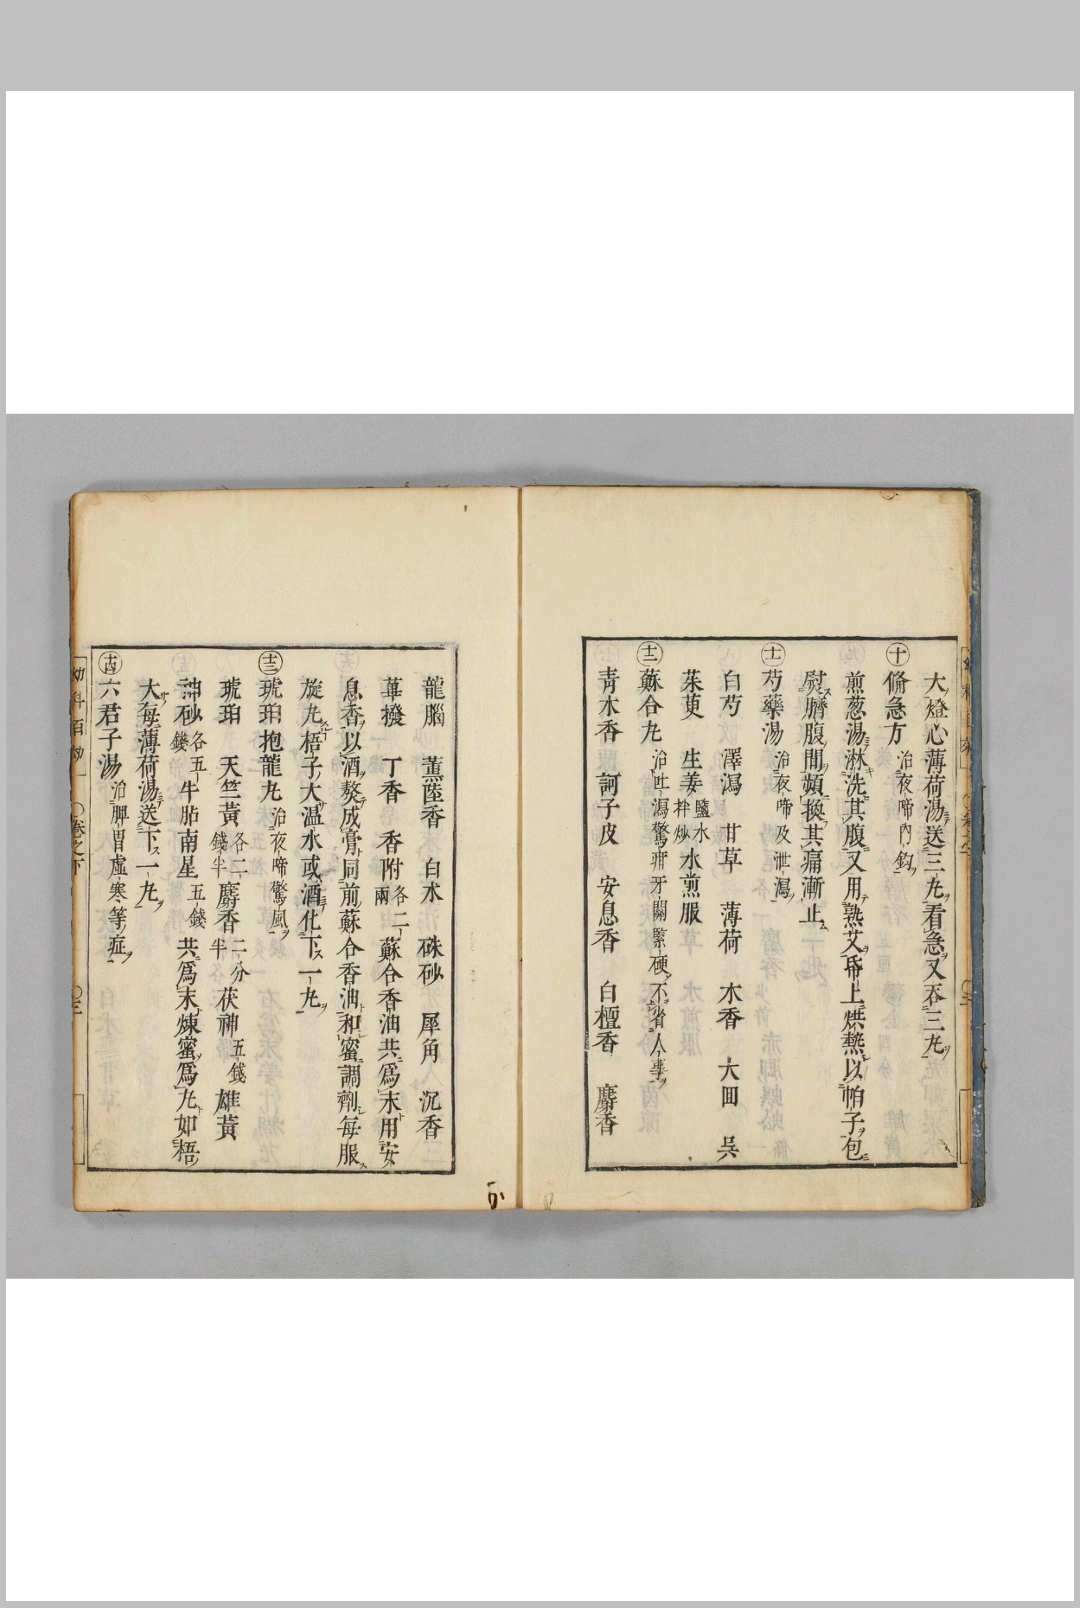 大燈心薄荷湯送三丸看急又吞三丸
㊉脩急方 治夜啼內釣
煎葱湯淋洗其腹又用熟艾帋上烘熱以帕子包
熨臍腹間頻換其痛漸止
十一芍藥湯 治夜啼及泄瀉
白芍 澤瀉 甘草 薄荷 木香 大回 吳
茱萸 生姜 鹽水拌炒 水煎服
十二蘇合丸 治吐瀉驚疳牙關緊硬不省人事
青木香 訶子皮 安息香 白檀香 麝香
龍腦 薫陸香 白朮 硃砂 犀角 沉香
蓽撥 丁香 香附 各二兩 蘇合香油共爲末用安
息香以酒熬成膏同前蘇合香油和蜜調劑每服
旋丸梧子大温水或酒化下一丸
十三琥珀抱龍丸 治夜啼驚風
琥珀 天竺黃 各二錢半 麝香 二分半 茯神 五錢 雄黃
神砂 各五錢 牛胆南星 五錢 共爲末煉蜜爲丸如梧
大每薄荷湯送下一丸
十四六君子湯 治脾胃虛寒等症
幼科百効 〇卷之下